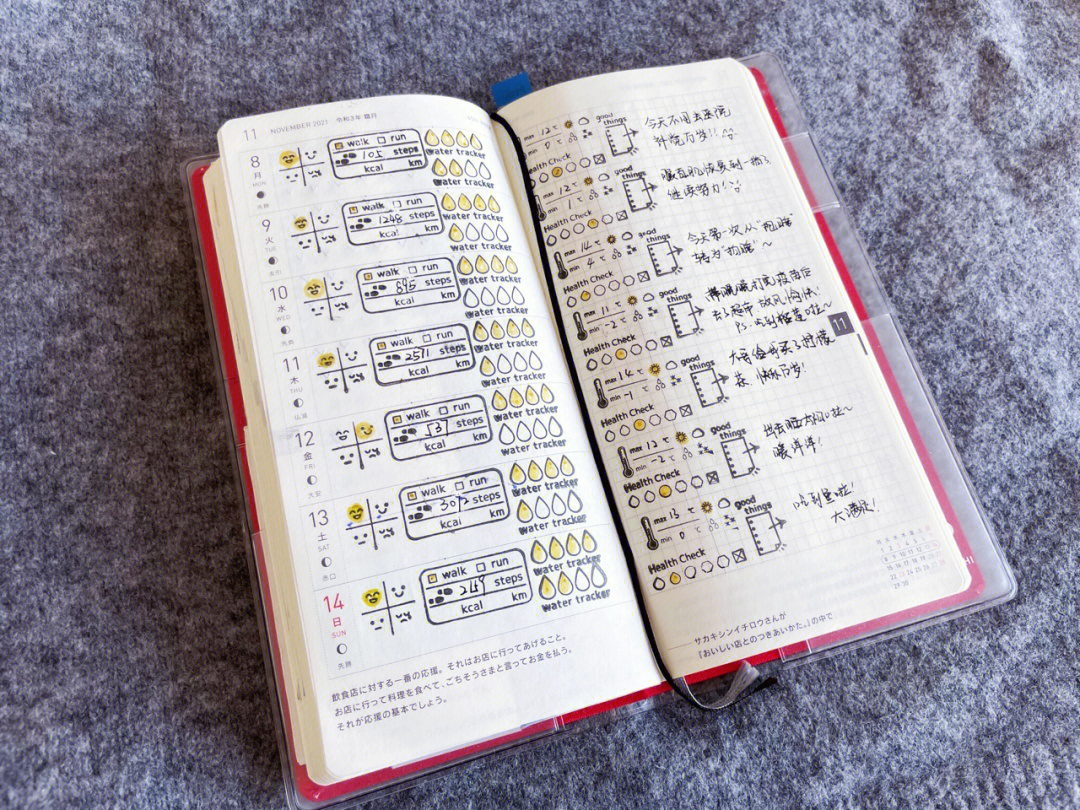 11 NOVEMBER 2021 令和3年 霜月
8
月
MON
先勝
walk run
105 steps
kcal km
water tracker
water tracker
9
火
TUE
友引
walk run
1248 steps
kcal km
water tracker
10
水
WED
先負
walk run
895 steps
kcal km
water tracker
11
木
THU
仏滅
walk run
2511 steps
kcal km
water tracker
12
金
FRI
大安
walk run
53 steps
kcal km
water tracker
water tracker
13
土
SAT
赤口
walk run
3072 steps
kcal km
water tracker
14
日
SUN
先勝
walk run
2119 steps
kcal km
water tracker
water tracker
飲食店に対する一番の応援。それはお店に行ってあげること。
お店に行って料理を食べて、ごちそうさまと言ってお金を払う。
それが応援の基本でしょう。
max 12℃
min 0℃
good things
Health Check
今天不用去医院
万岁!!
max 12℃
min 1℃
good things
Health Check
恢复到一档了
继续努力!
max 14℃
min 4℃
good things
Health Check
今天第一次从“抱睡”
转为“拍睡”~
max 11℃
min -2℃
good things
Health Check
打完疫苗
max 14℃
min -1℃
good things
Health Check
max 12℃
min -2℃
good things
Health Check
出去晒太阳啦~
暖洋洋!
max 13℃
min 0℃
good things
Health Check
吃到鱼啦!
大满足!
11
サカキシンイチロウさんが
『おいしい店とのつきあいかた。』の中で